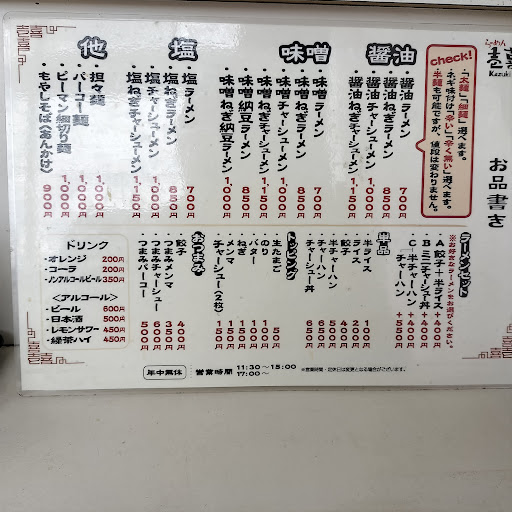 らーめん
壱喜
Kazuki
お品書き
check!
・「太麺」「細麺」選べます。
・ネギ味付け「辛い」「辛く無い」選べます。
・半麺も可能ですが、値段は変わりません。
醤油
・醤油ラーメン 700円
・醤油ねぎラーメン 850円
・醤油チャーシューメン 1,000円
・醤油ねぎチャーシューメン 1,150円
味噌
・味噌ラーメン 700円
・味噌ねぎラーメン 850円
・味噌チャーシューメン 1,000円
・味噌ねぎチャーシューメン 1,150円
・味噌納豆ラーメン 850円
・味噌ねぎ納豆ラーメン 1,000円
塩
・塩ラーメン 700円
・塩ねぎラーメン 850円
・塩チャーシューメン 1,000円
・塩ねぎチャーシューメン 1,150円
他
・担々麺 1,000円
・パーコー麺 1,000円
・ピーマン細切り麺 1,000円
・もやしそば(あんかけ) 900円
ラーメンセット
※お好きなラーメンをお選びください。
A 餃子+半ライス +450円
B ミニチャーシュー丼 +400円
C 半チャーハン +400円
チャーハン +550円
単品
半ライス 100円
ライス 200円
餃子 400円
半チャーハン 500円
チャーハン 600円
チャーシュー丼 650円
トッピング
生たまご 50円
のり 100円
バター 100円
ねぎ 150円
メンマ 150円
チャーシュー(2枚) 150円
おつまみ
餃子 400円
つまみメンマ 350円
つまみチャーシュー 600円
つまみパーコー 500円
ドリンク
・オレンジ 200円
・コーラ 200円
・ノンアルコールビール 350円
<アルコール>
・ビール 600円
・日本酒 500円
・レモンサワー 450円
・緑茶ハイ 450円
年中無休 営業時間 11:30~15:00
17:00~
※営業時間・定休日は変更となる場合がございます。